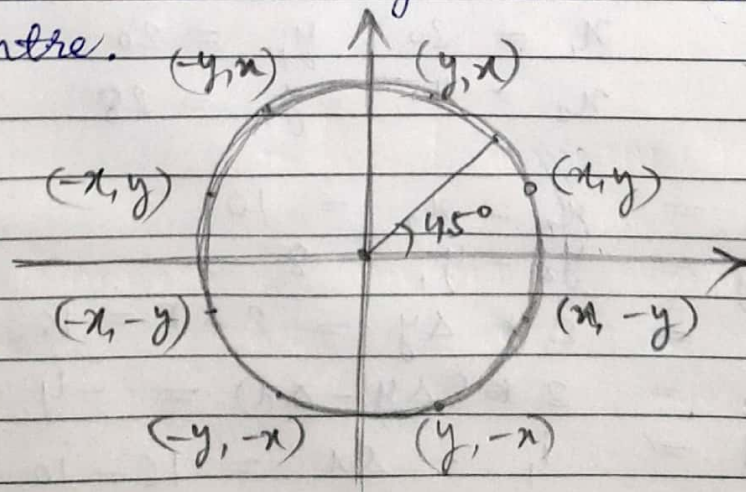 ntre.
(-y, x) (y, x)
(-x, y) (x, y)
45°
(-x, -y) (x, -y)
(-y, -x) (y, -x)